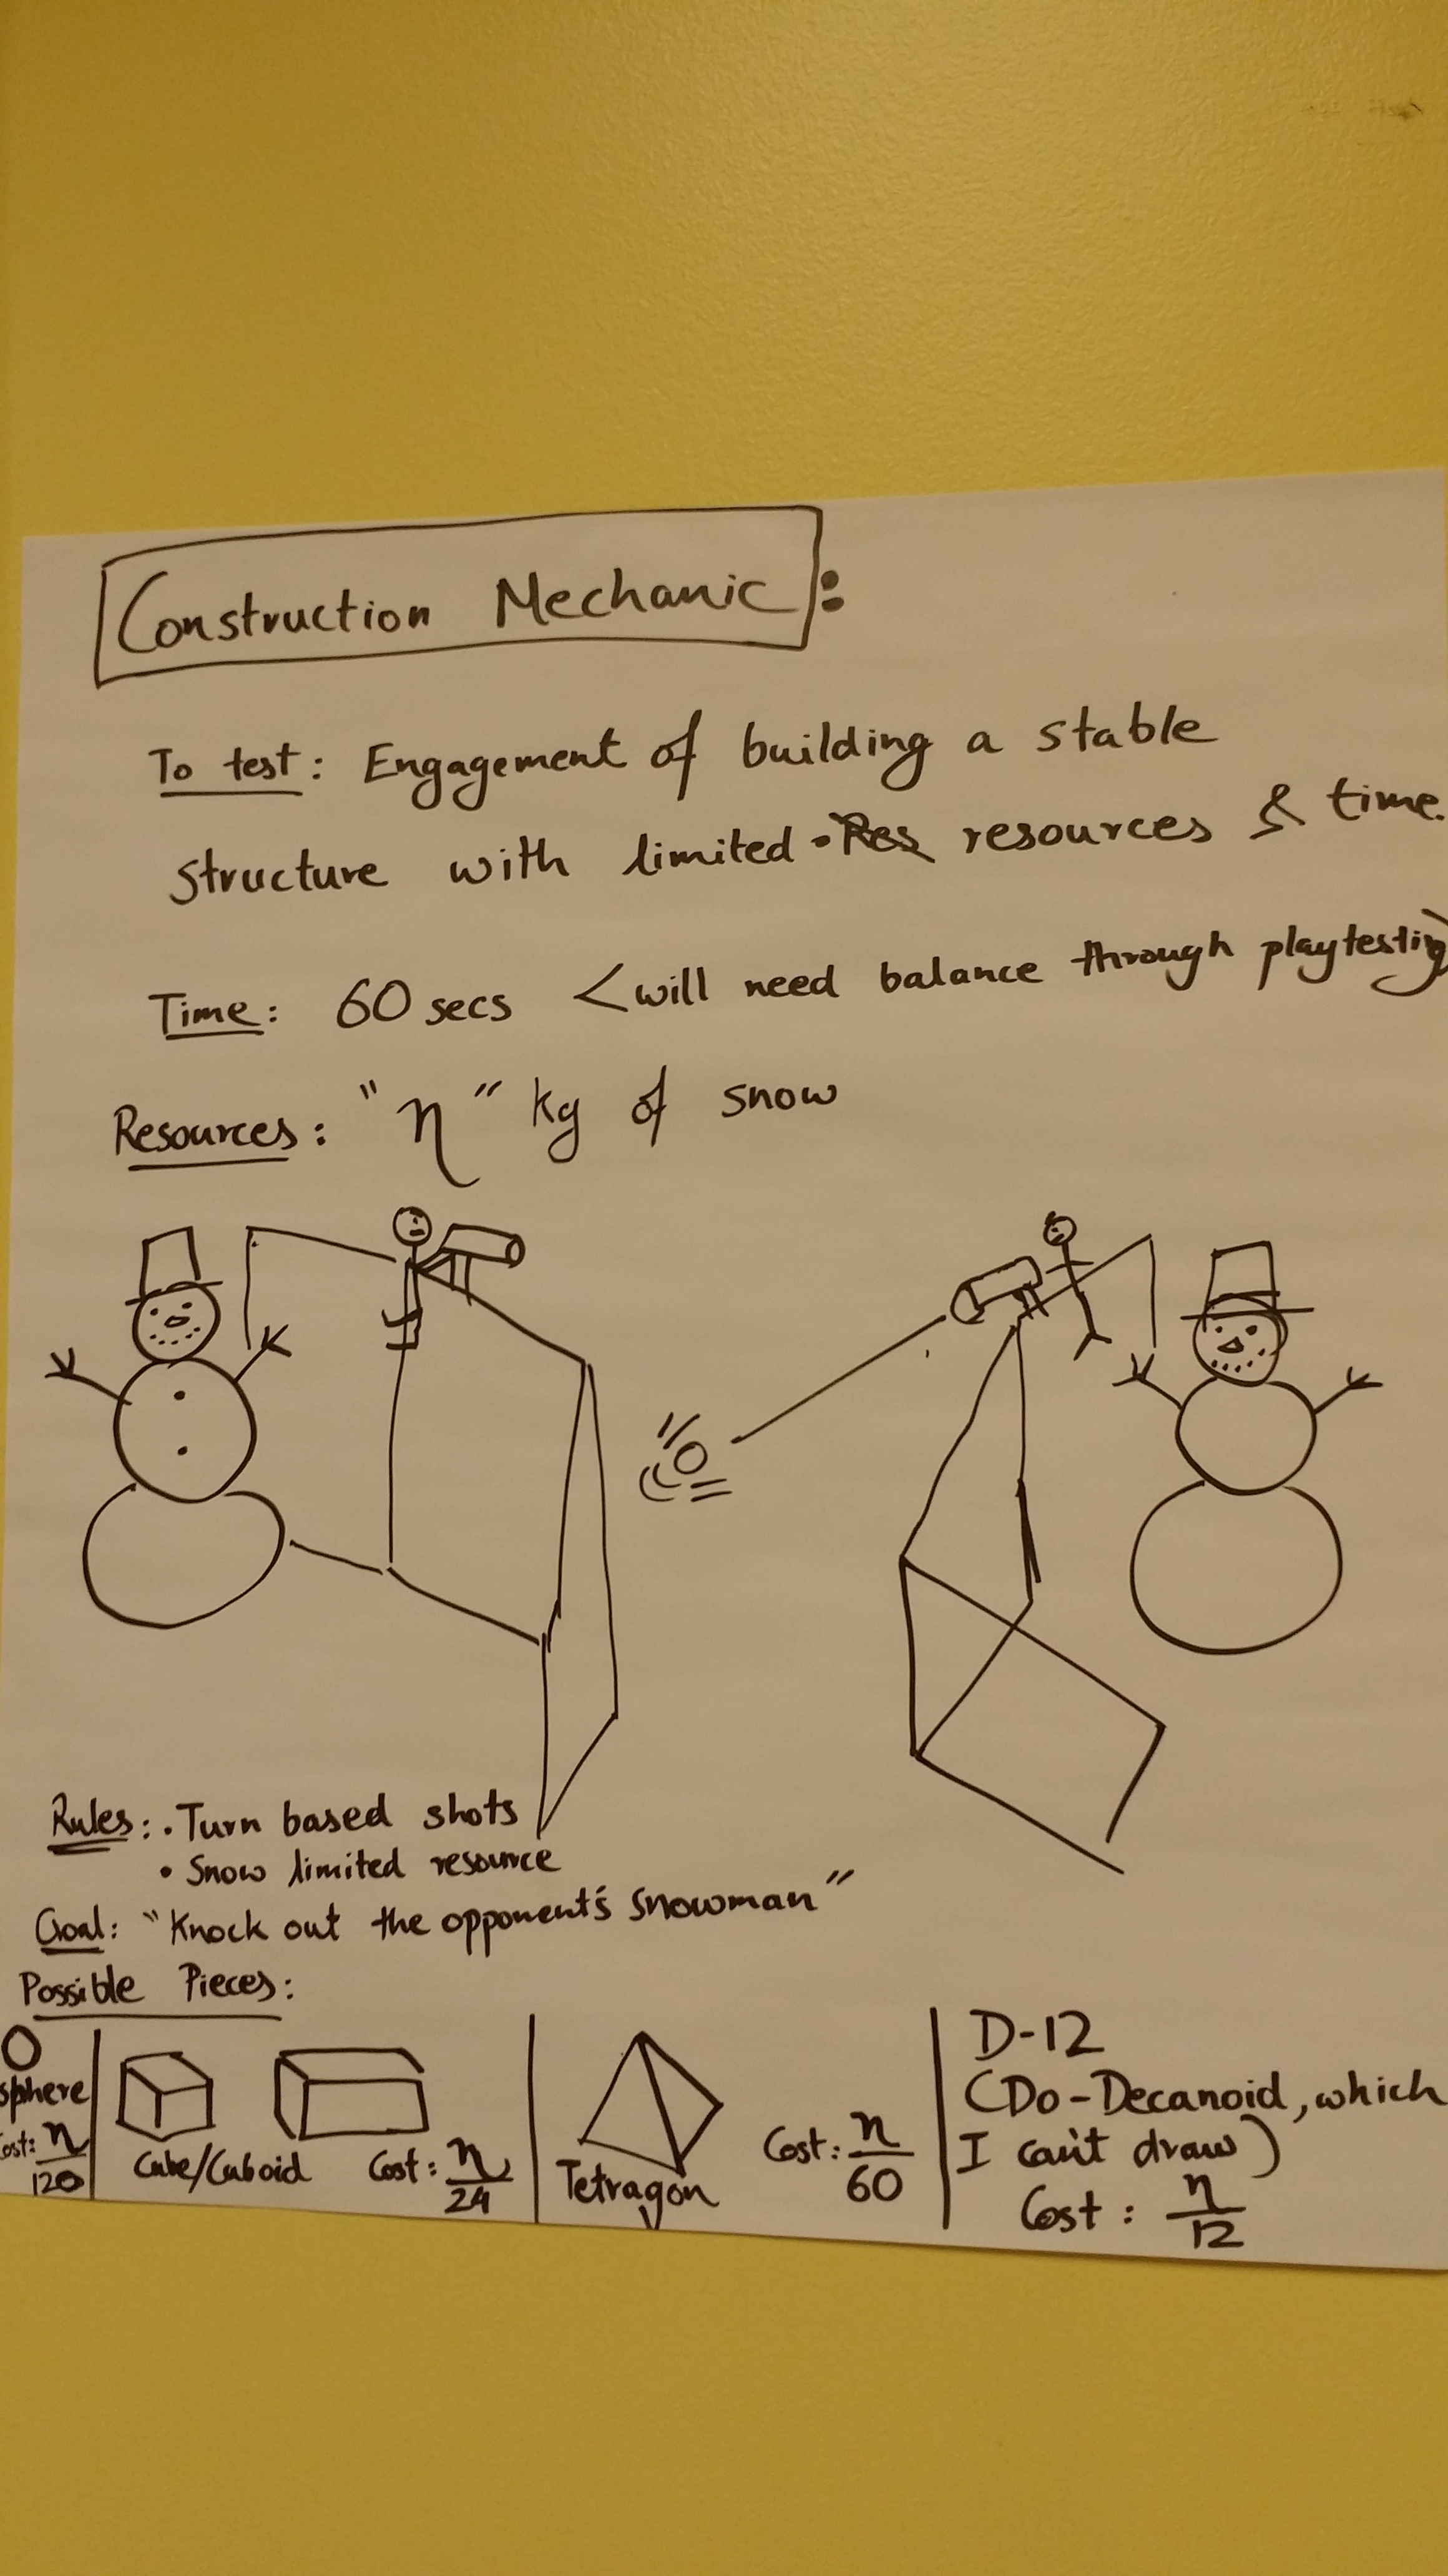 Construction Mechanic:
To test: Engagement of building a stable
structure with limited resources & time.
Time: 60 secs <will need balance through playtesting>
Resources: "n" kg of snow
Rules: . Turn based shots
• Snow limited resource
Goal: "Knock out the opponent's snowman"
Possible Pieces:
sphere
Cost: n/120
Cube/Cuboid Cost: n/24
Tetragon Cost: n/60
D-12
(Do-Decanoid, which
I can't draw)
Cost: n/12